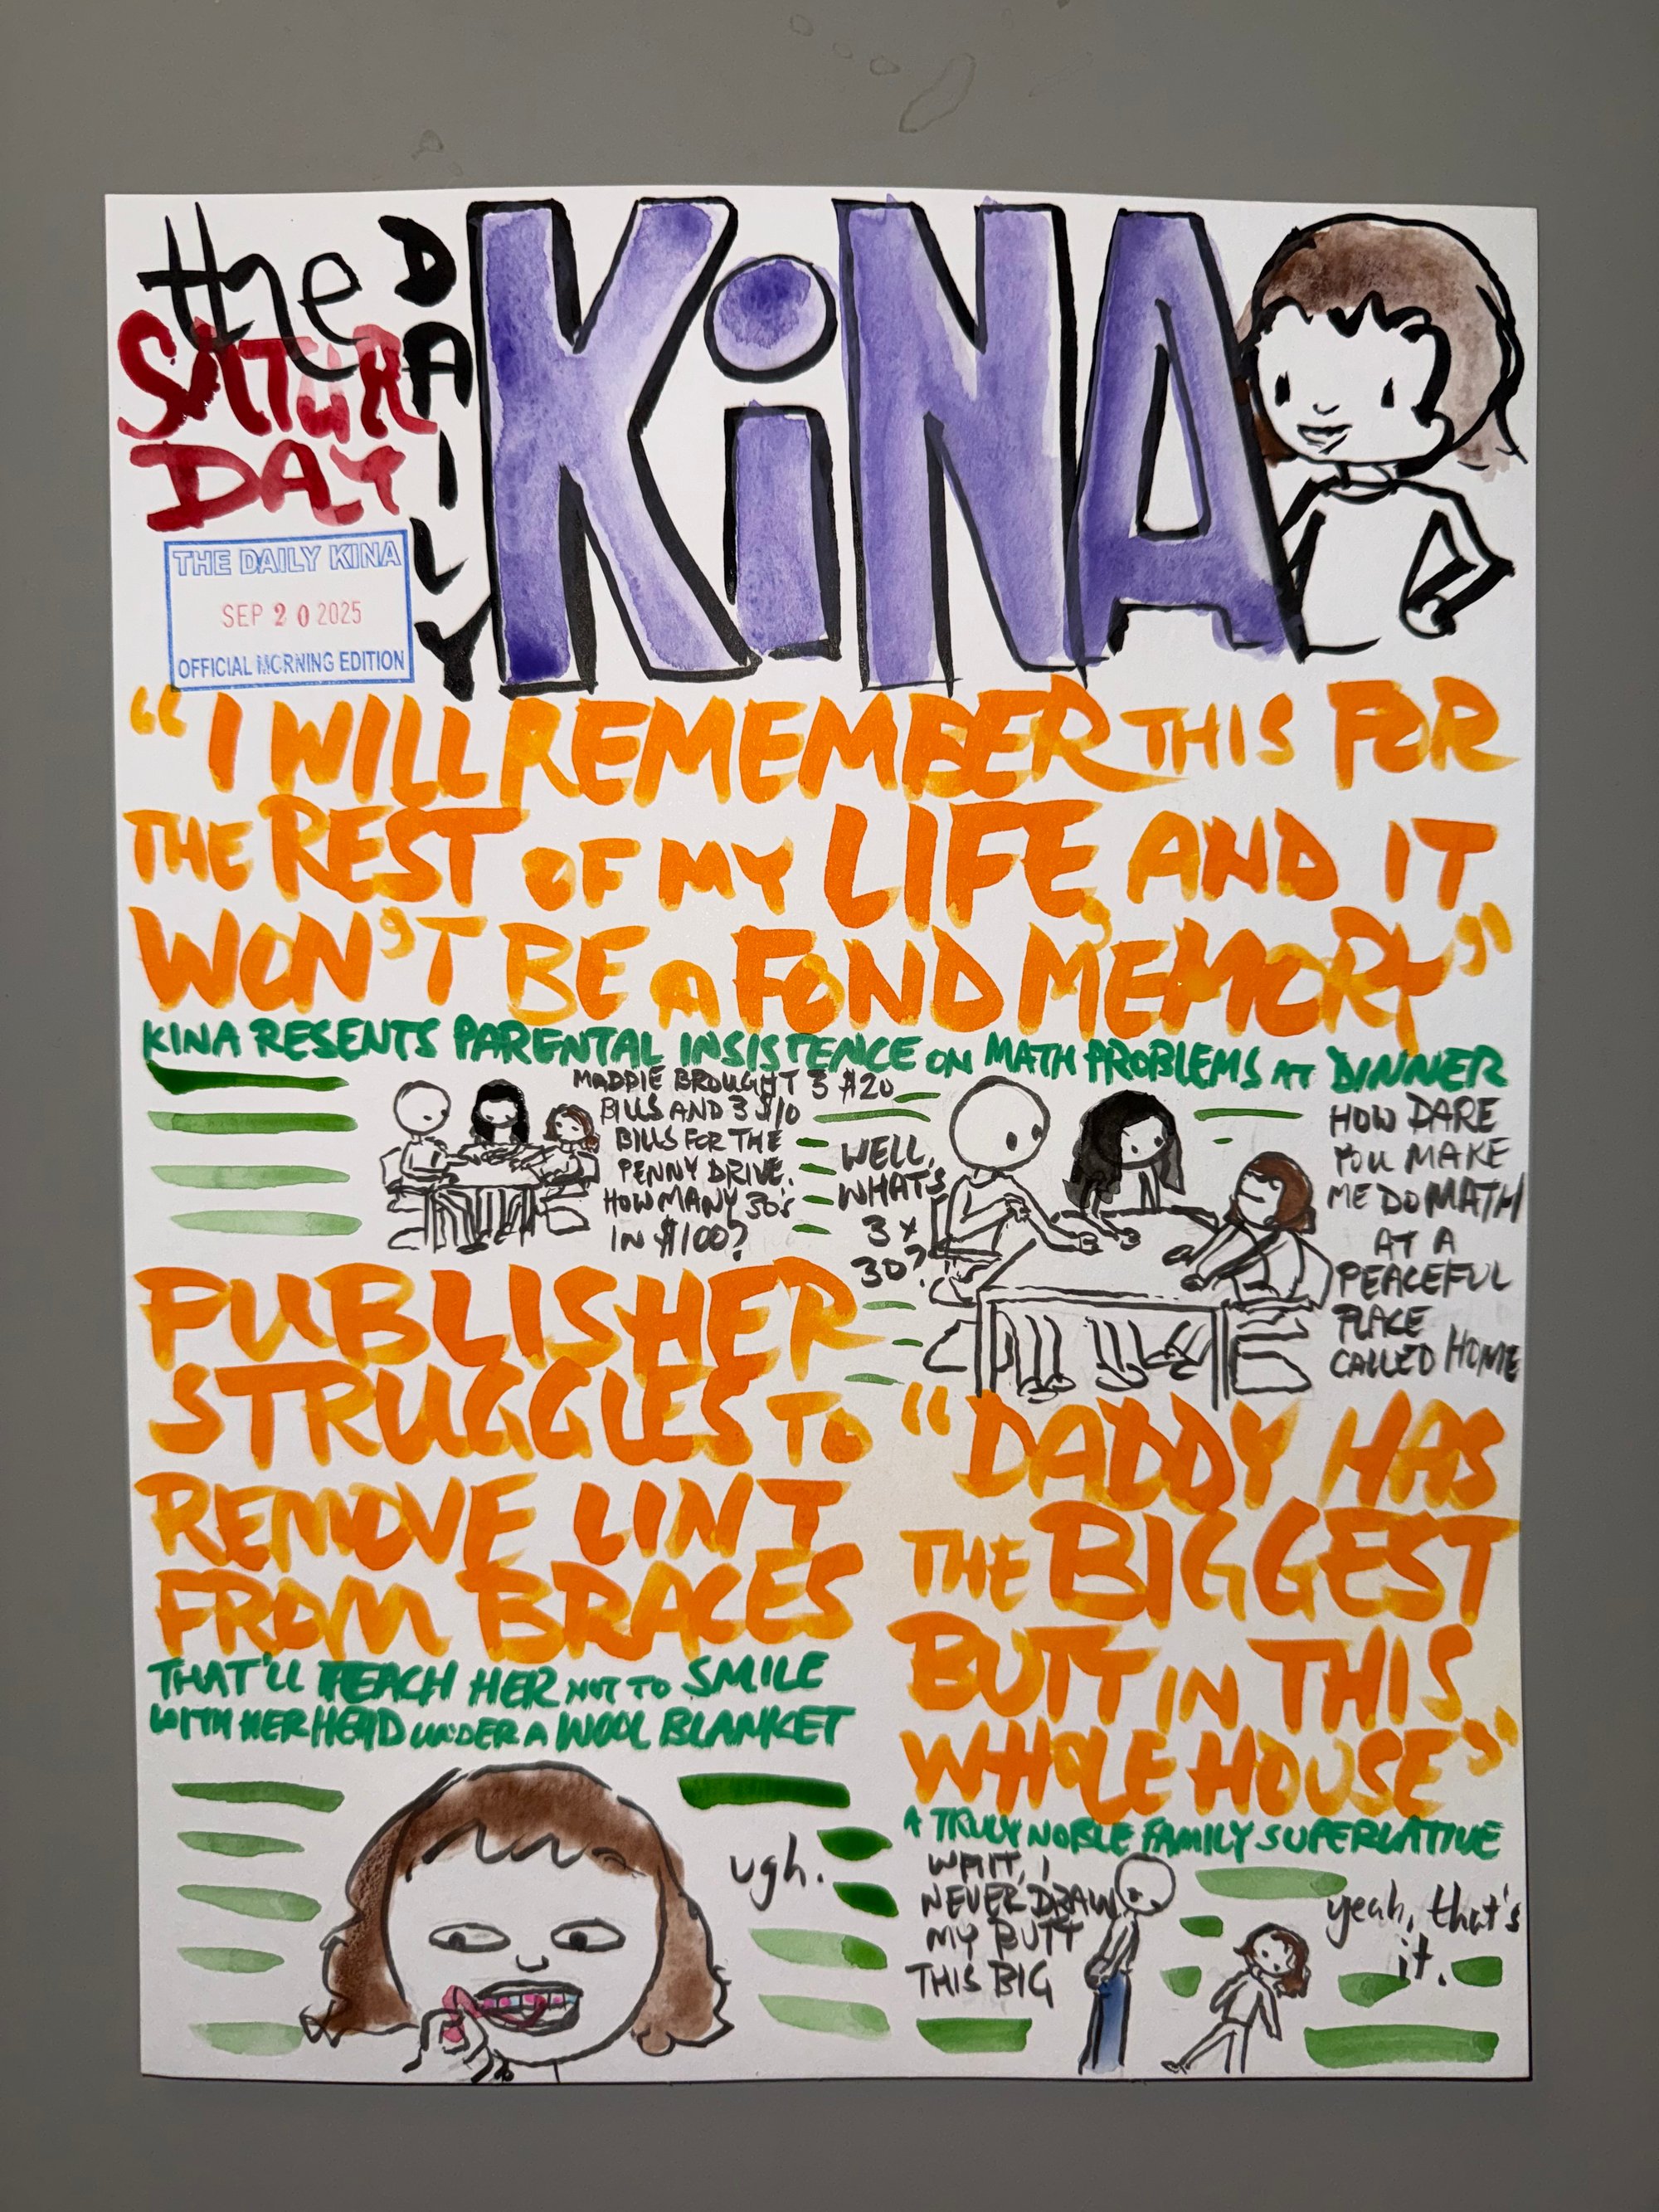 the
DAILY
SATUR
DAY
KiNA
THE DAILY KINA
SEP 20 2025
OFFICIAL MORNING EDITION
"I WILL REMEMBER THIS FOR
THE REST OF MY LIFE, AND IT
WON'T BE A FOND MEMORY"
KINA RESENTS PARENTAL INSISTENCE ON MATH PROBLEMS AT DINNER
MADDIE BROUGHT 3 $20
BILLS AND 3 $10
BILLS FOR THE
PENNY DRIVE.
HOW MANY 30's
IN $100?
WELL,
WHAT'S
3 x
30?
HOW DARE
YOU MAKE
ME DO MATH
AT A
PEACEFUL
PLACE
CALLED HOME
PUBLISHER
STRUGGLES TO
REMOVE LINT
FROM BRACES
THAT'LL TEACH HER NOT TO SMILE
WITH HER HEAD UNDER A WOOL BLANKET
ugh.
"DADDY HAS
THE BIGGEST
BUTT IN THIS
WHOLE HOUSE"
A TRULY NOBLE FAMILY SUPERLATIVE
WAIT, I
NEVER DRAW
MY BUTT
THIS BIG
yeah, that's
it.